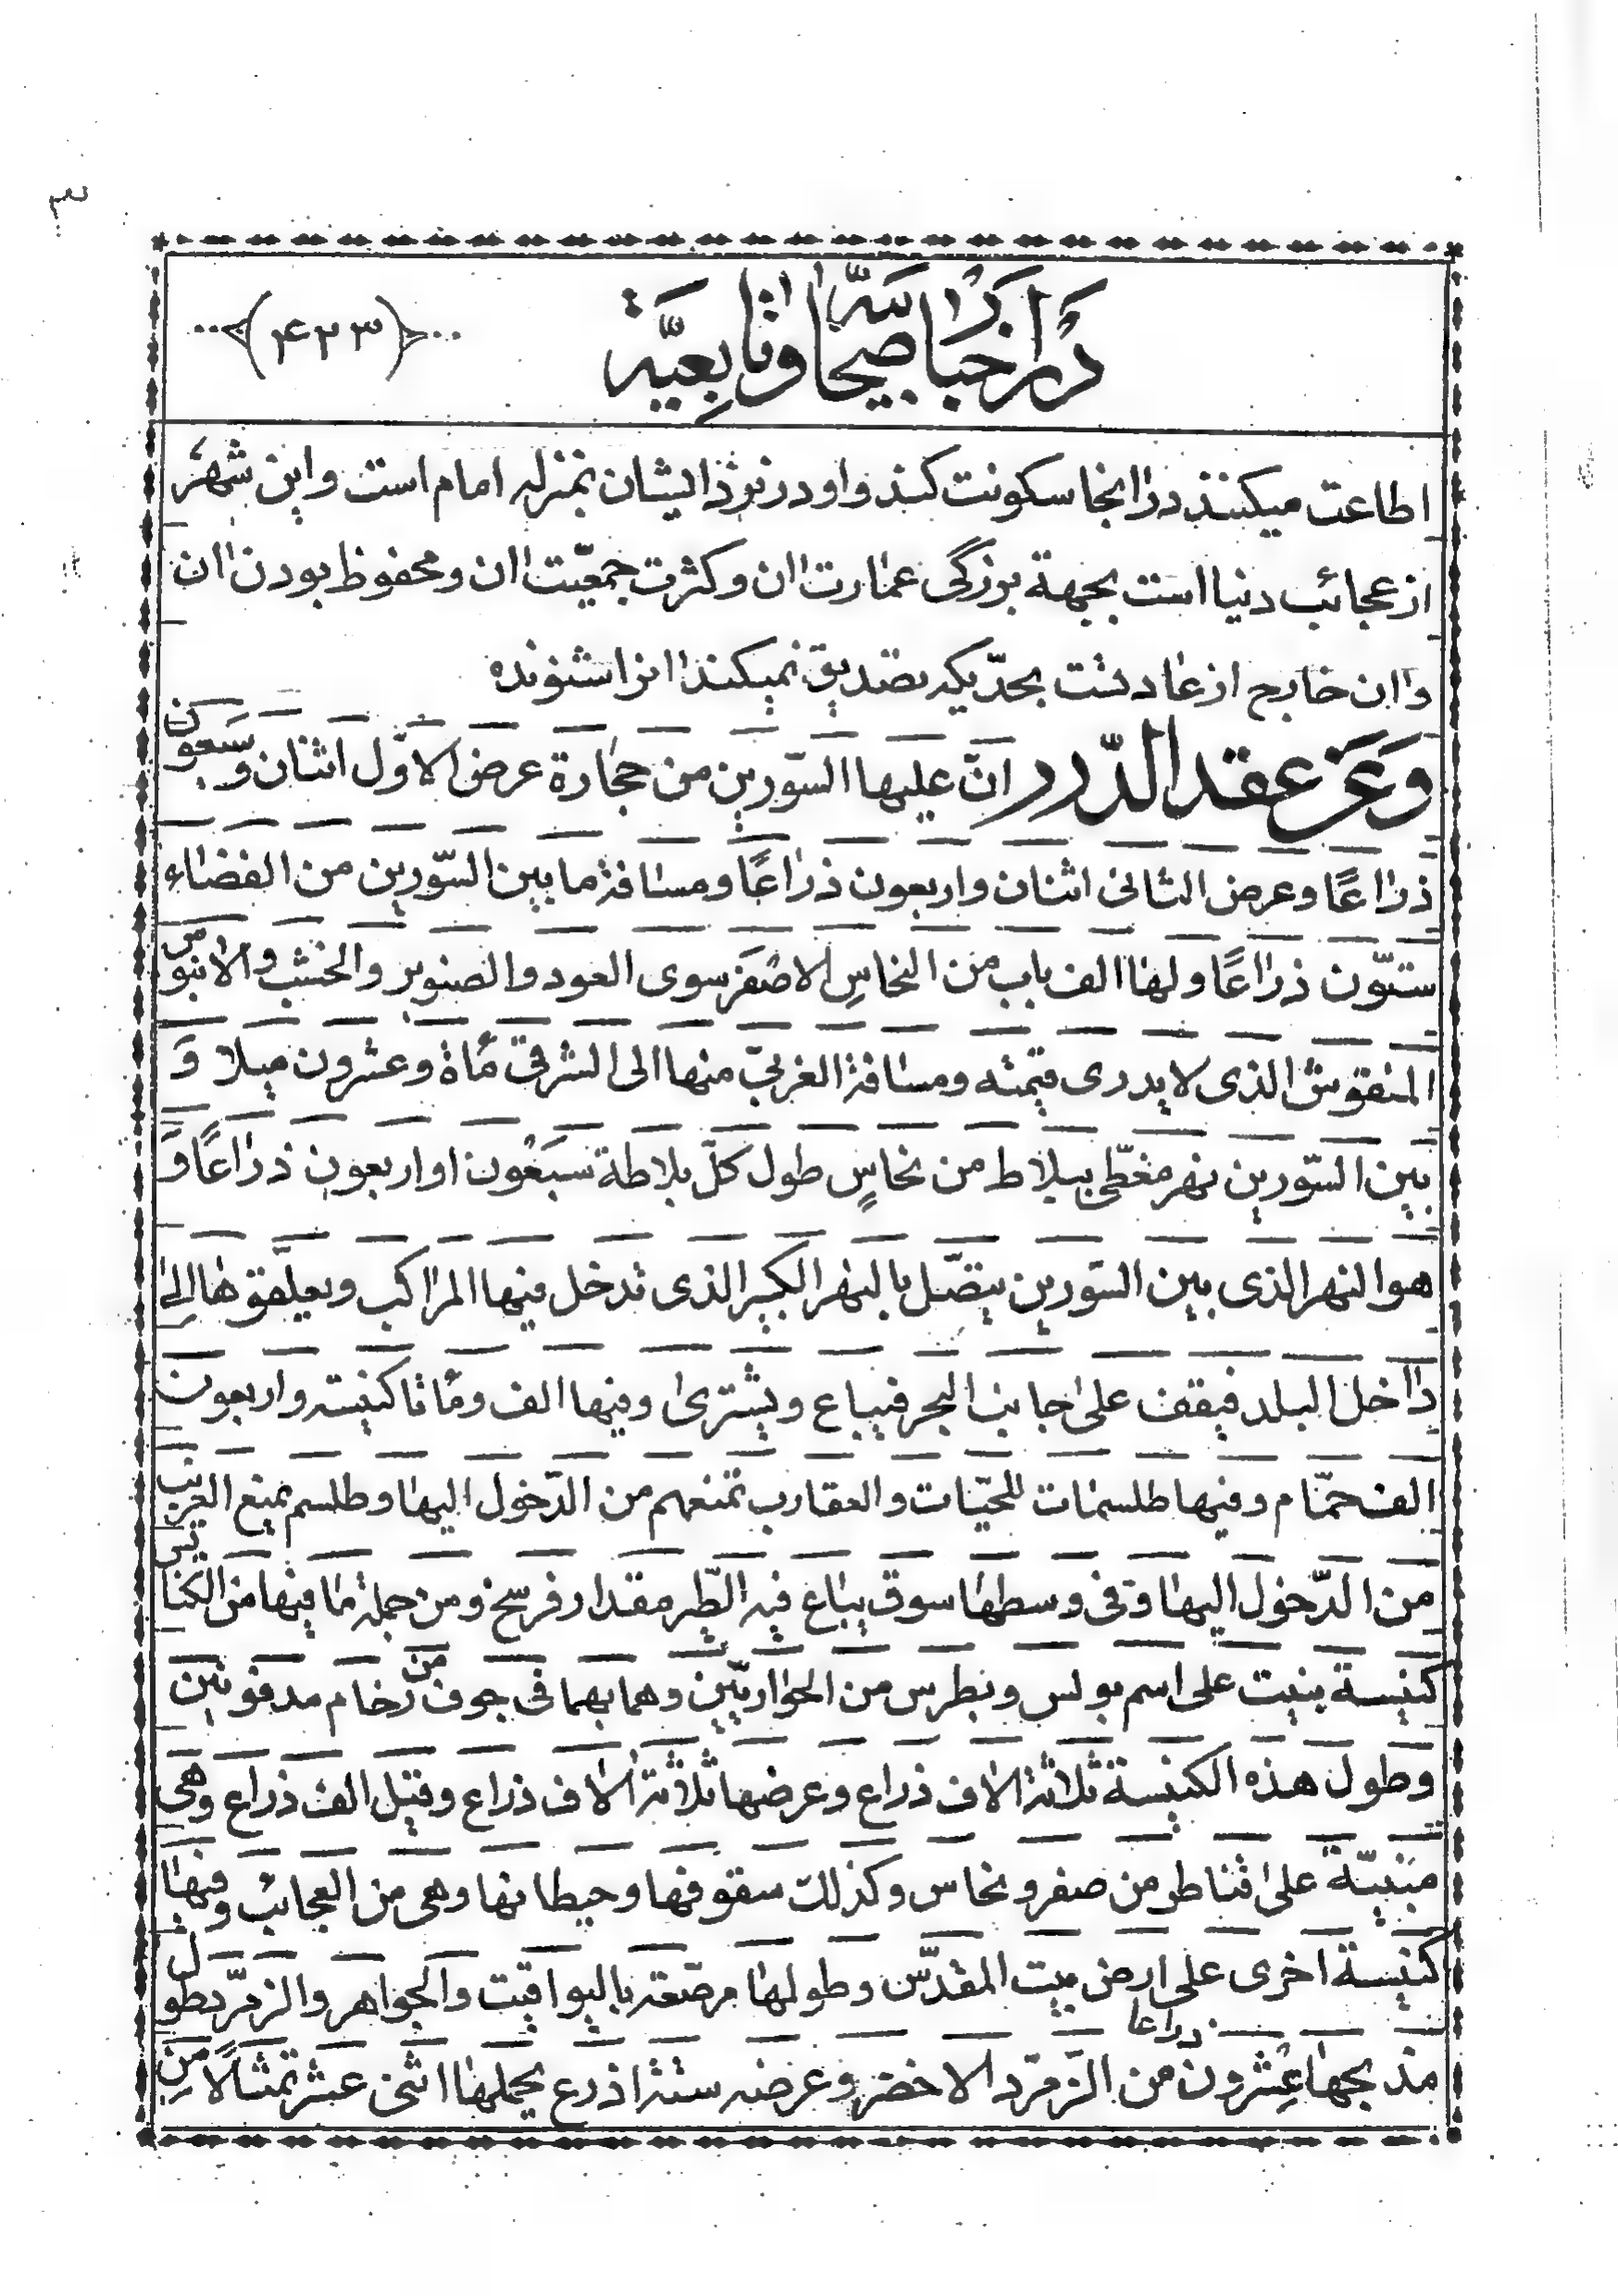 در اخبار صحابه و تابعیّة
(۴۲۳)
اطاعت میکنند در انجا سکونت کند و او در نزد ایشان بمنزله امام است و این شهر
از عجائب دنیا است بجهة بزرگی عمارت ان و کثرت جمعیّت ان و محفوظ بودن ان
و ان خارج از عادتست بحدّیکه تصدیق نمیکند انرا شنونده
وعن عقد الدّرر انّ علیها السّورین من حجارة عرض الاوّل اثنان و سبعون
ذراعًا و عرض الثانی اثنان و اربعون ذراعًا و مسافة ما بین السّورین من الفضاء
ستّون ذراعًا و لها الف باب من النحاسِ الاصفر سوی العود و الصنوبر و الخشب و الابنوس
المنقوش الذی لا یدری قیمته و مسافة الغربیّ منها الی الشرقیّ مأة و عشرون میلا وَ
بین السّورین نهر مغطّی ببلاط من نحاسٍ طول کلّ بلاطة سبعُون او اربعون ذراعًا وَ
هو النهر الذی بین السّورین یتصّل بالنهر الکبیر الذی تدخل فیها المراکب و بعلقوها الی
داخل البلد فیقف علی جانب البحر فیباع و یشتری و فیها الف و مأتا کنیسة و اربعون
الف حمّام و فیها طلسمات للحیّات و العقارب تمنعهم من الدّخول الیها و طلسم یمنع الغریب
من الدّخول الیها و فی وسطها سوق یباع فیه الطّیر مقدار فرسخ و من جملة ما فیها من الکنایس
کنیسة بنیت علی اسم بولس و بطرس من الحواریّین و هما بهما فی جوف من رخام مدفونین
و طول هذه الکنیسة ثلاثة الاف ذراع و عرضها ثلاثة الاف ذراع و قیل الف ذراع و هی
مبنیّة علی قناطر من صفر و نحاس و کذلک سقوفها و حیطانها و هی من العجائب و فیها
کنیسة اخری علی ارض بیت المقدّس و طولها مرصّعة بالیواقیت و الجواهر و الزمرّد بطول
مذبحها عشرون ذراعا من الزّمرّد الاخضر و عرضه ستّة اذرع یحملها اثنی عشر تمثالًا من